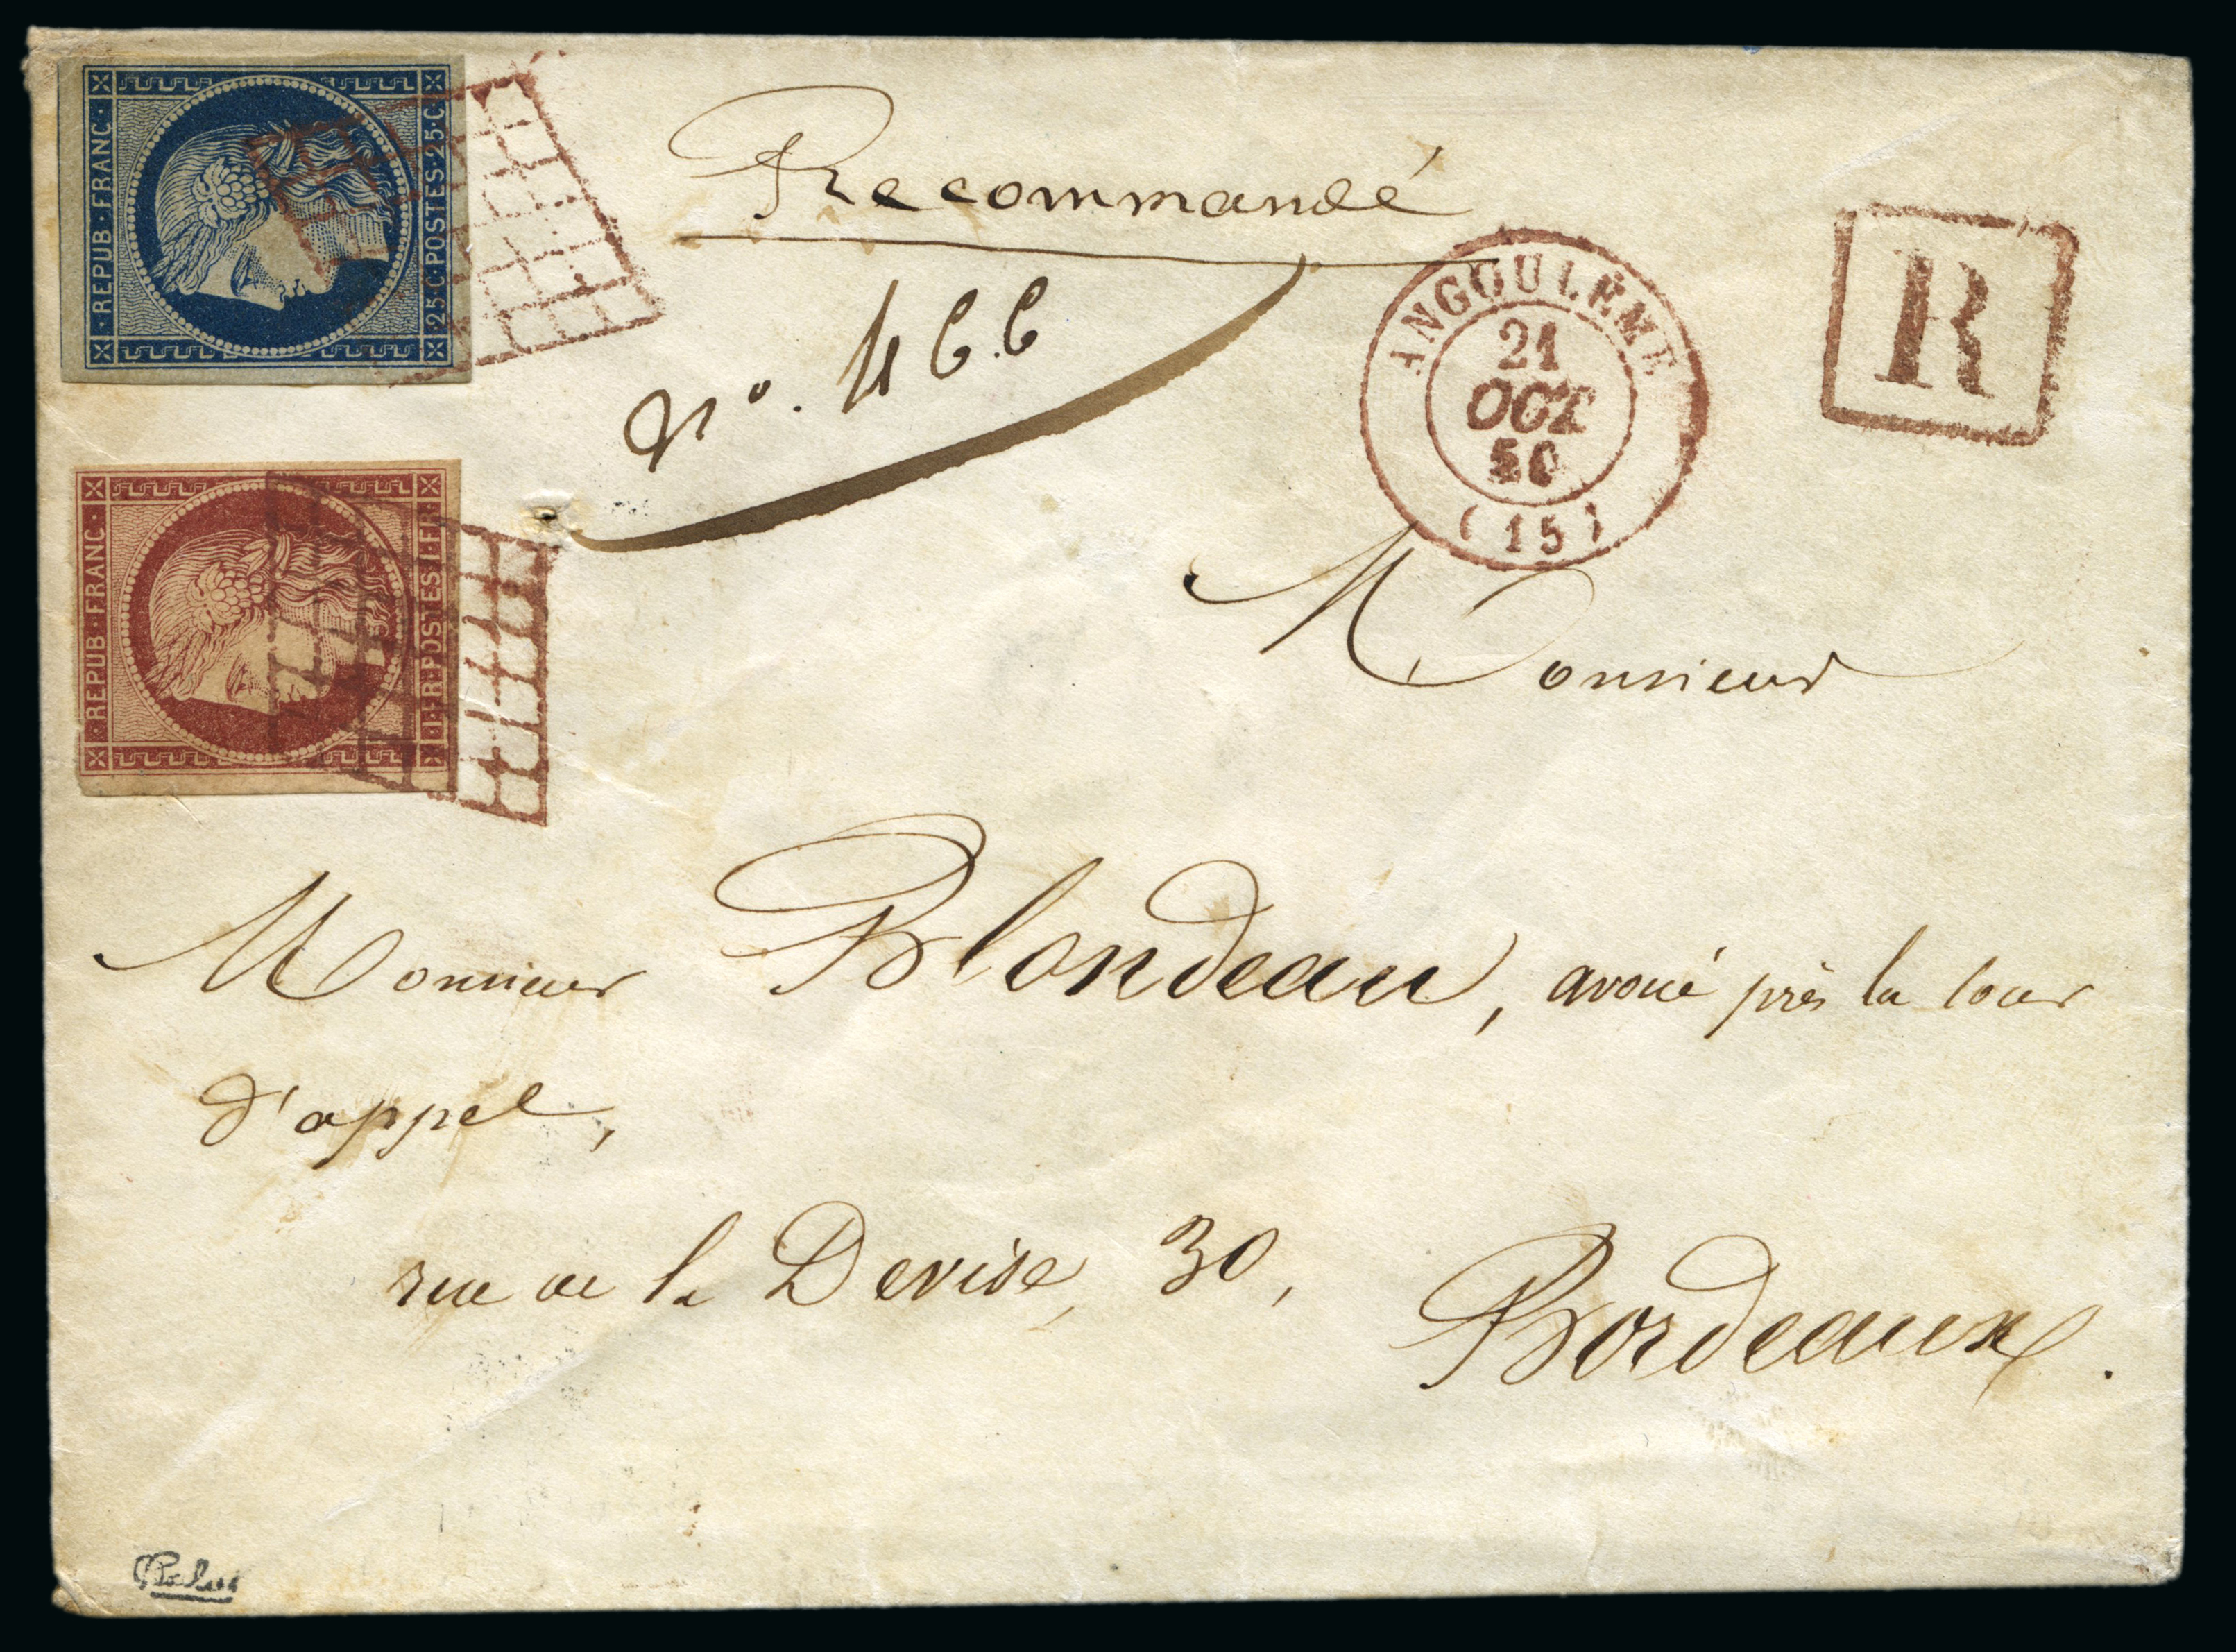 REPUB·FRANC·
·25·C·POSTES·25·C·
Recommandé
nº. 466
ANGOULÊME
21
OCT
50
(15)
R
REPUB·FRANC·
1·FR·POSTES·1·FR·
Monsieur
Monsieur Blondeau, avoué près la Cour
d'appel,
rue de la Devise, 30,
Bordeaux.